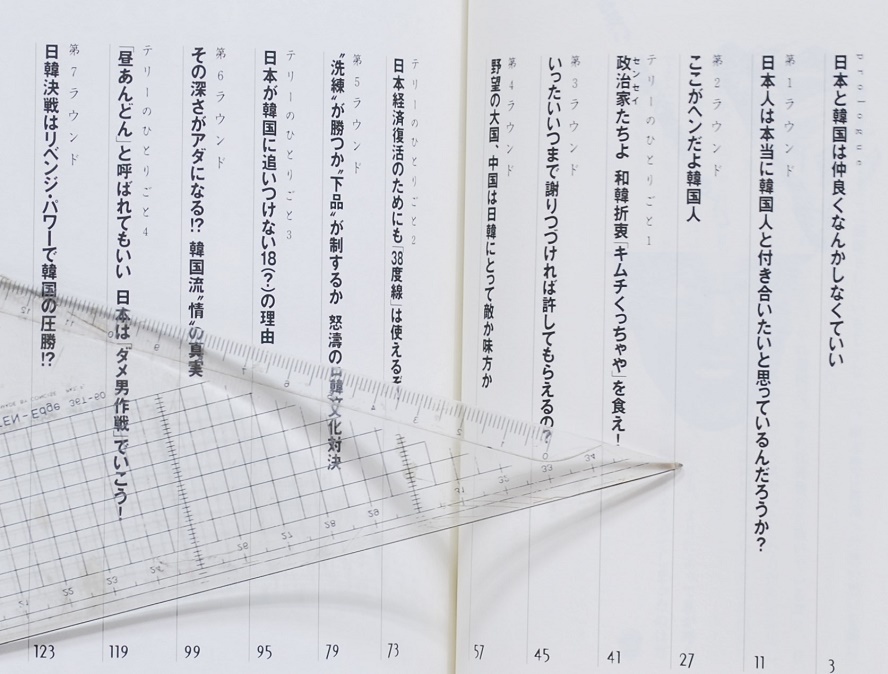 prologue
日本と韓国は仲良くなんかしなくていい
3
第1ラウンド
日本人は本当に韓国人と付き合いたいと思っているんだろうか?
11
第2ラウンド
ここがヘンだよ韓国人
27
テリーのひとりごと1
政治家たちよ 和韓折衷「キムチくっちゃや」を食え!
センセイ
41
第3ラウンド
いったいいつまで謝りつづければ許してもらえるの?
45
第4ラウンド
野望の大国、中国は日韓にとって敵か味方か
57
テリーのひとりごと2
日本経済復活のためにも「38度線」は使えるぞ
73
第5ラウンド
“洗練”が勝つか“下品”が制するか 怒濤の日韓文化対決
79
テリーのひとりごと3
日本が韓国に追いつけない18(?)の理由
95
第6ラウンド
その深さがアダになる!? 韓国流“情”の真実
99
テリーのひとりごと4
「昼あんどん」と呼ばれてもいい 日本は「ダメ男作戦」でいこう!
119
第7ラウンド
日韓決戦はリベンジ・パワーで韓国の圧勝!?
123